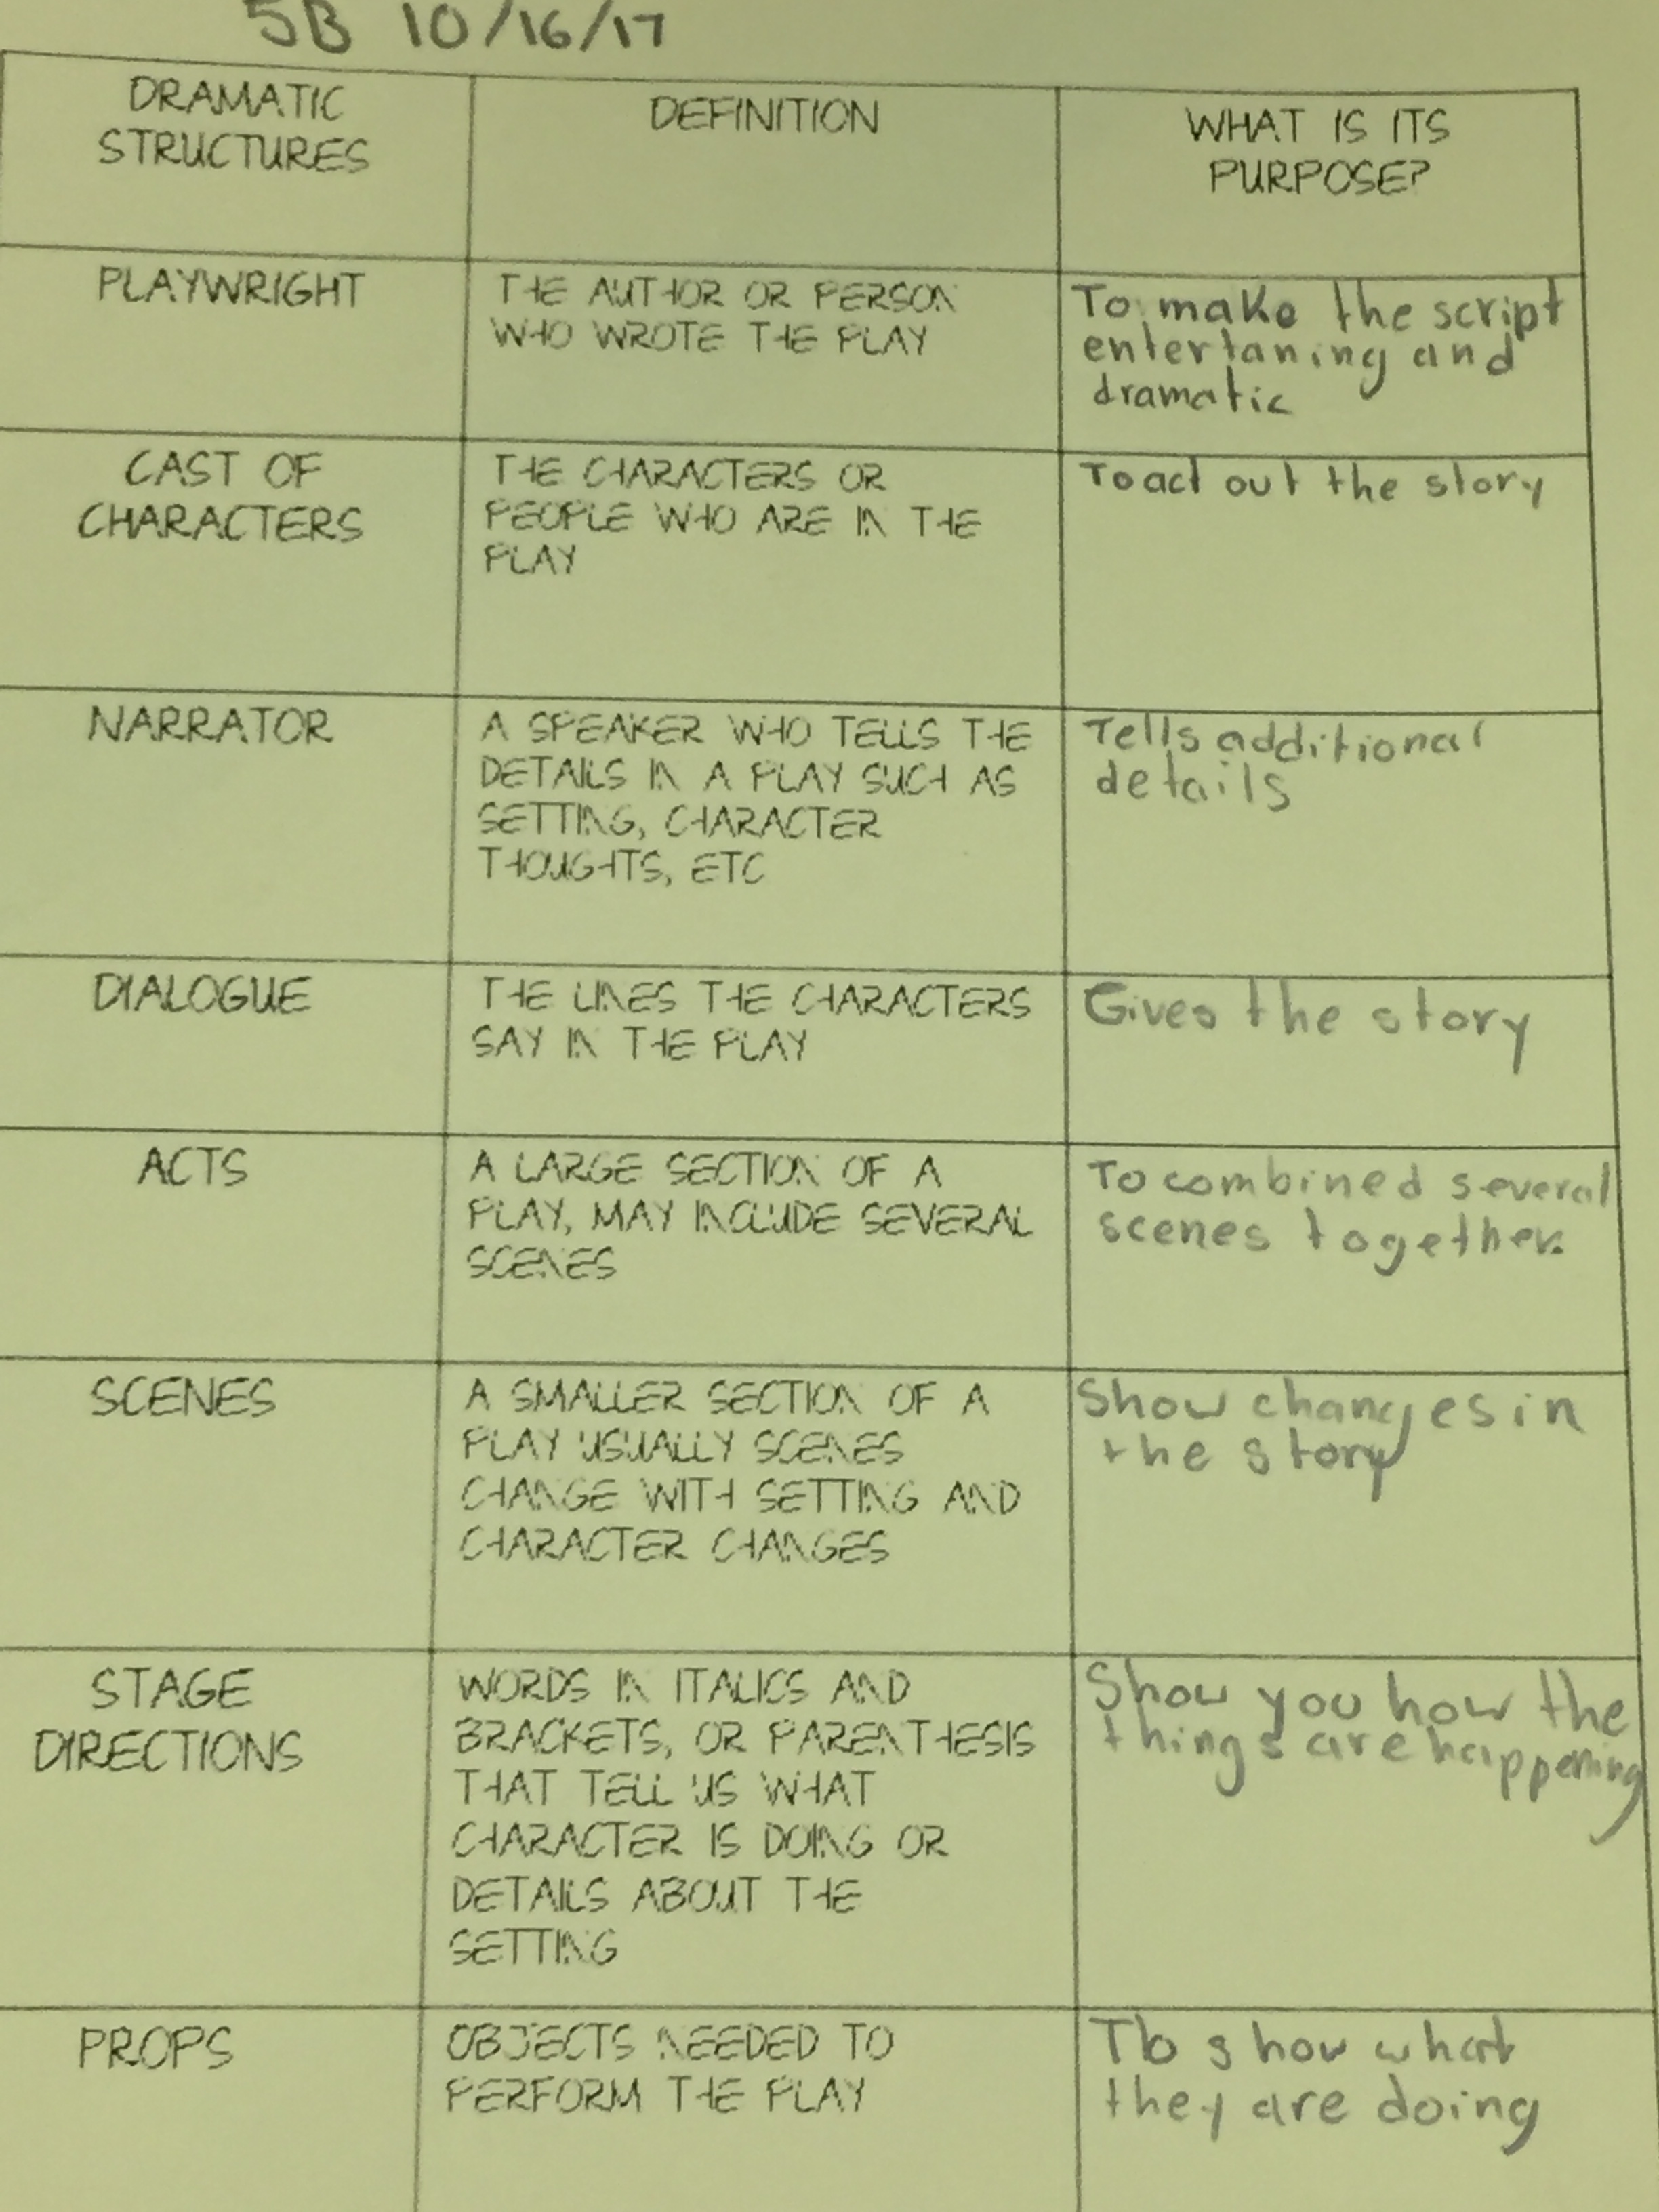 5B 10/16/17
DRAMATIC
STRUCTURES
DEFINITION
WHAT IS ITS
PURPOSE?
PLAYWRIGHT
THE AUTHOR OR PERSON
WHO WROTE THE PLAY
To make the script
entertaning and
dramatic
CAST OF
CHARACTERS
THE CHARACTERS OR
PEOPLE WHO ARE IN THE
PLAY
To act out the story
NARRATOR
A SPEAKER WHO TELLS THE
DETAILS IN A PLAY SUCH AS
SETTING, CHARACTER
THOUGHTS, ETC
Tells additional
details
DIALOGUE
THE LINES THE CHARACTERS
SAY IN THE PLAY
Gives the story
ACTS
A LARGE SECTION OF A
PLAY, MAY INCLUDE SEVERAL
SCENES
To combined several
scenes together.
SCENES
A SMALLER SECTION OF A
PLAY USUALLY SCENES
CHANGE WITH SETTING AND
CHARACTER CHANGES
Show changes in
the story
STAGE
DIRECTIONS
WORDS IN ITALICS AND
BRACKETS, OR PARENTHESIS
THAT TELL US WHAT
CHARACTER IS DOING OR
DETAILS ABOUT THE
SETTING
Show you how the
things are happening
PROPS
OBJECTS NEEDED TO
PERFORM THE PLAY
To show what
they are doing